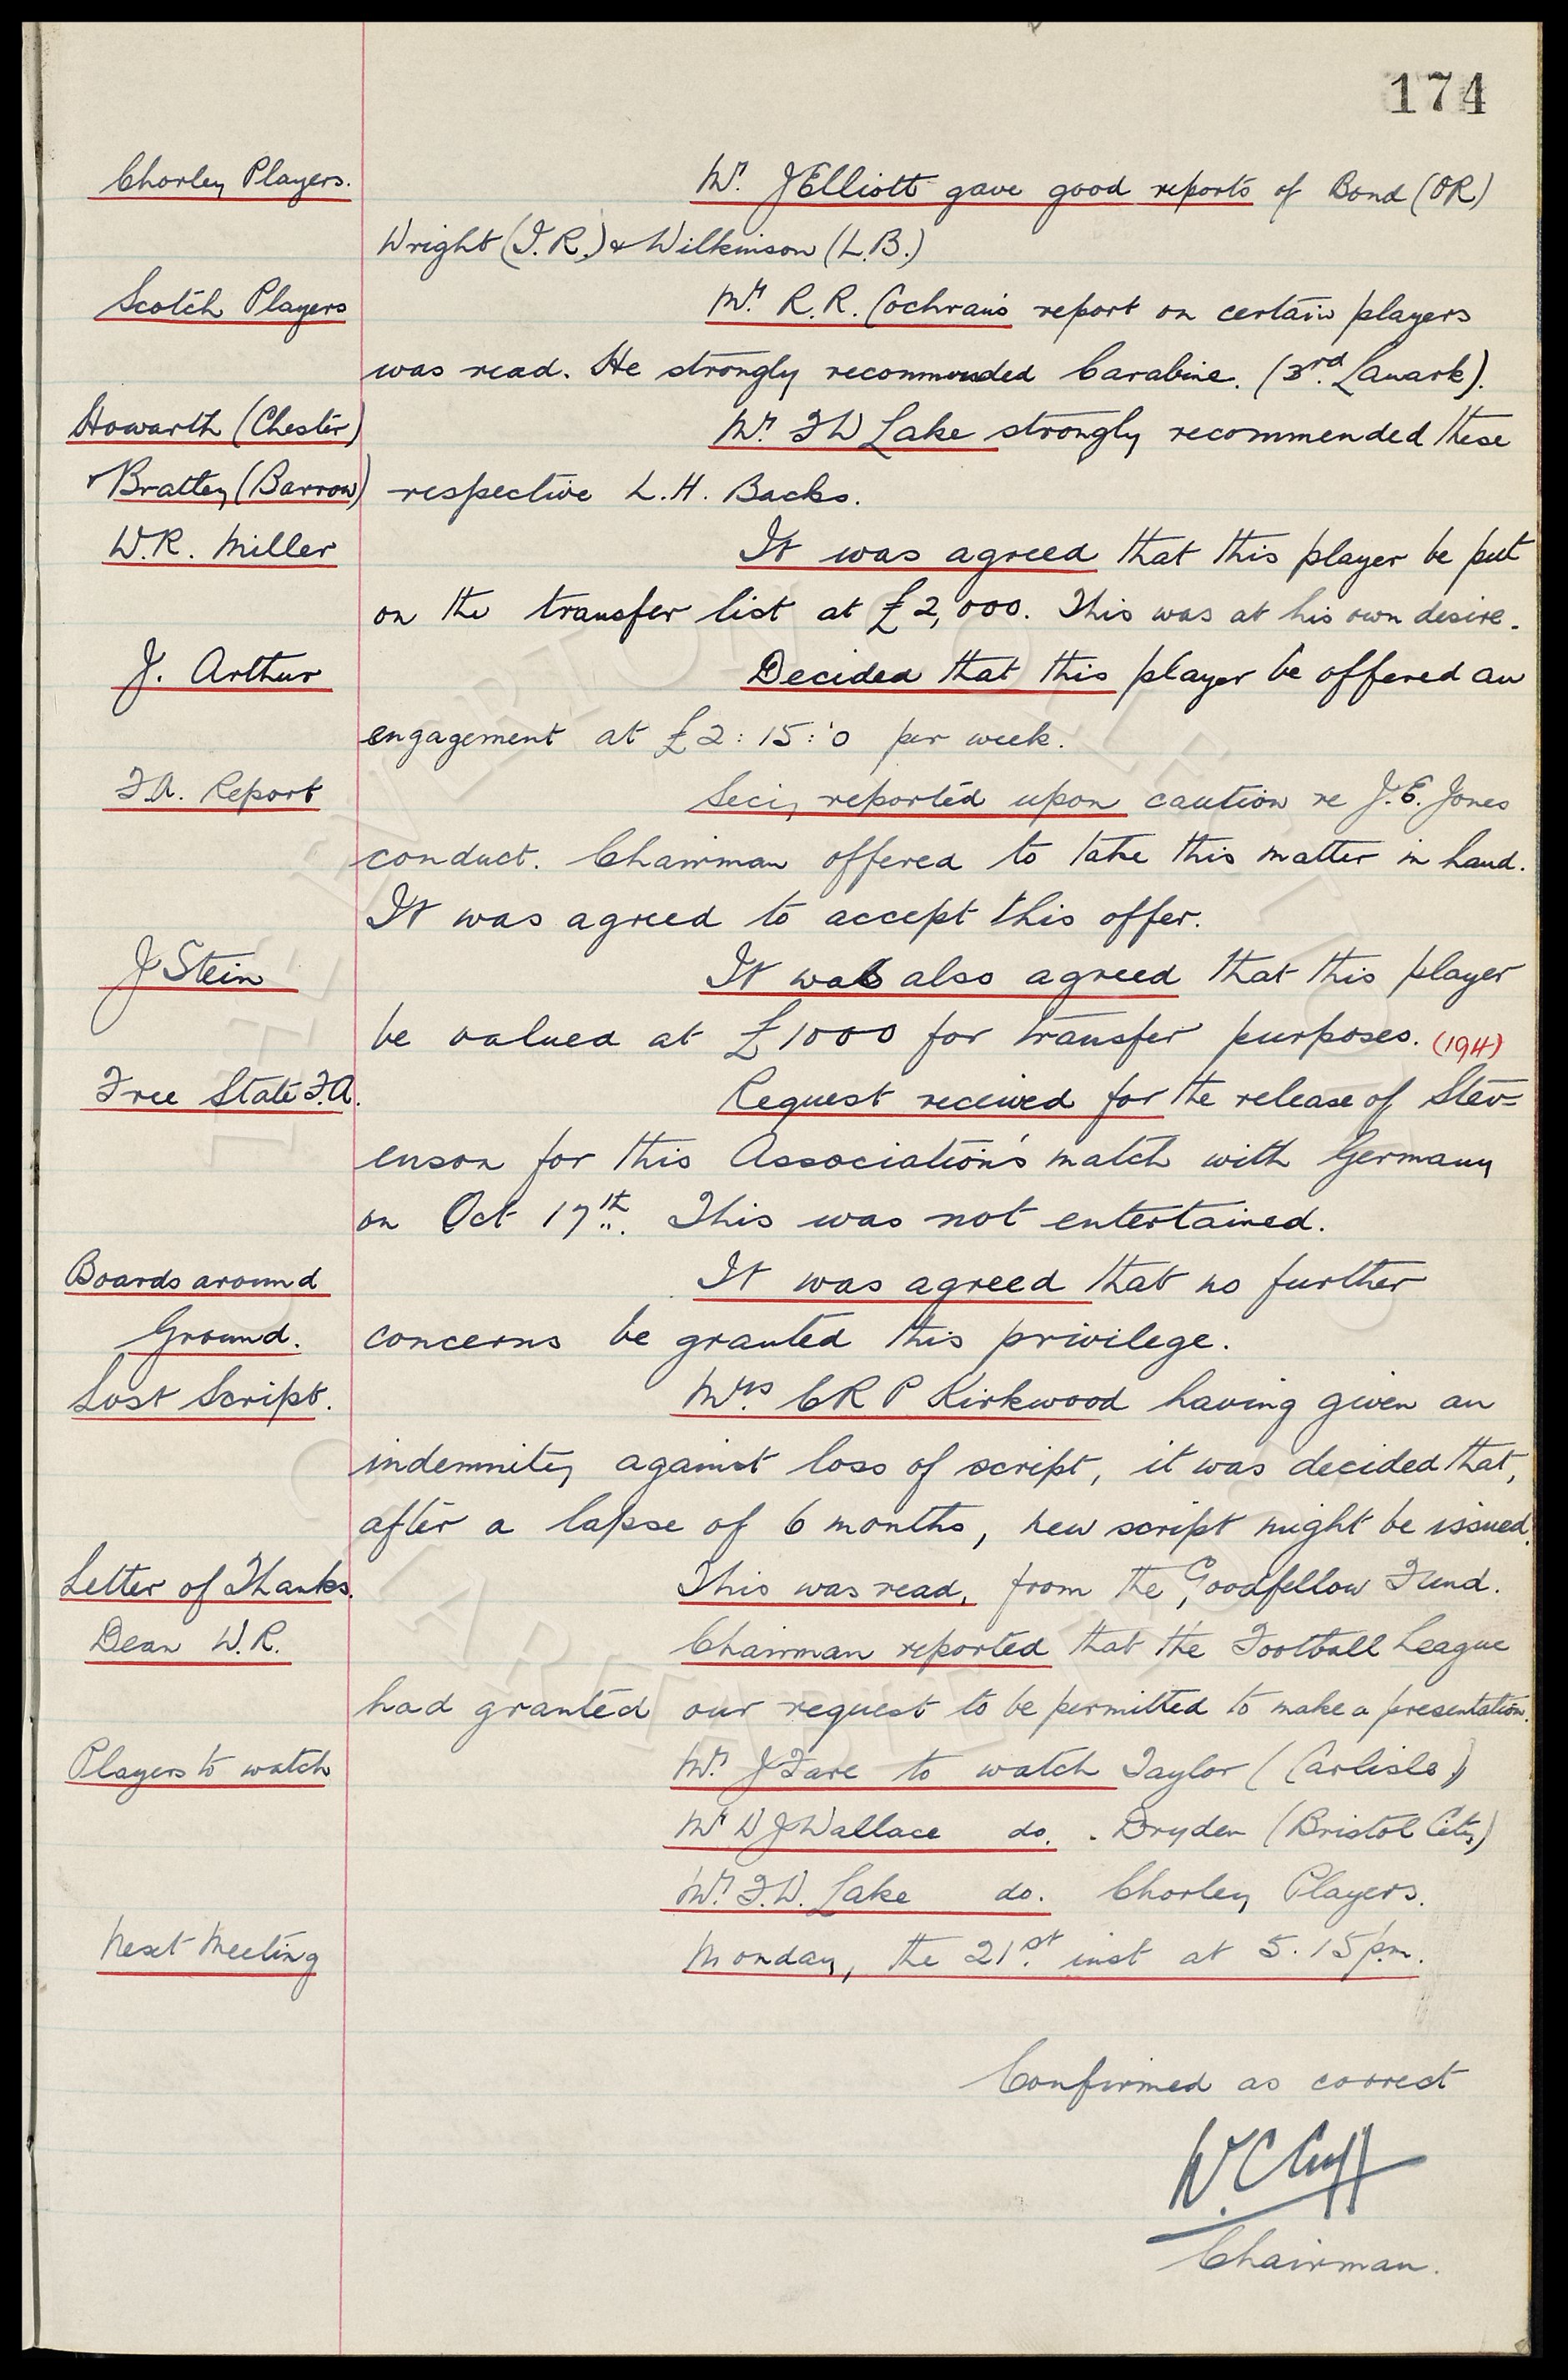 174
Chorley Players. Mr. J Elliott gave good reports of Bond (OR)
Wright (I.R.) & Wilkinson (L.B.)
Scotch Players Mr. R.R. Cochran's report on certain players
was read. He strongly recommended Carabine. (3rd. Lanark).
Howarth (Chester) Mr. F W Lake strongly recommended these
& Bratley (Barrow) respective L.H. Backs.
W.R. Miller It was agreed that this player be put
on the transfer list at £2,000. This was at his own desire.
J. Arthur Decided that this player be offered an
engagement at £2:15:0 per week.
F.A. Report Secy reported upon caution re J.E. Jones
conduct. Chairman offered to take this matter in hand.
It was agreed to accept this offer.
J Stein It was also agreed that this player
be valued at £1000 for transfer purposes. (194)
Free State F.A. Request received for the release of Stev=
enson for this Association's match with Germany
on Oct 17th. This was not entertained.
Boards around It was agreed that no further
Ground. concerns be granted this privilege.
Lost Script. Mrs. C R P Kirkwood having given an
indemnity against loss of script, it was decided that,
after a lapse of 6 months, new script might be issued.
Letter of Thanks. This was read, from the Goodfellow Fund.
Dean W.R. Chairman reported that the Football League
had granted our request to be permitted to make a presentation.
Players to watch Mr. J Fare to watch Taylor (Carlisle)
Mr W J Wallace do. Dryden (Bristol City)
Mr. F.W. Lake do. Chorley Players.
Next Meeting Monday, the 21st. inst at 5.15 p.m.
Confirmed as correct
W C Cuff
Chairman.